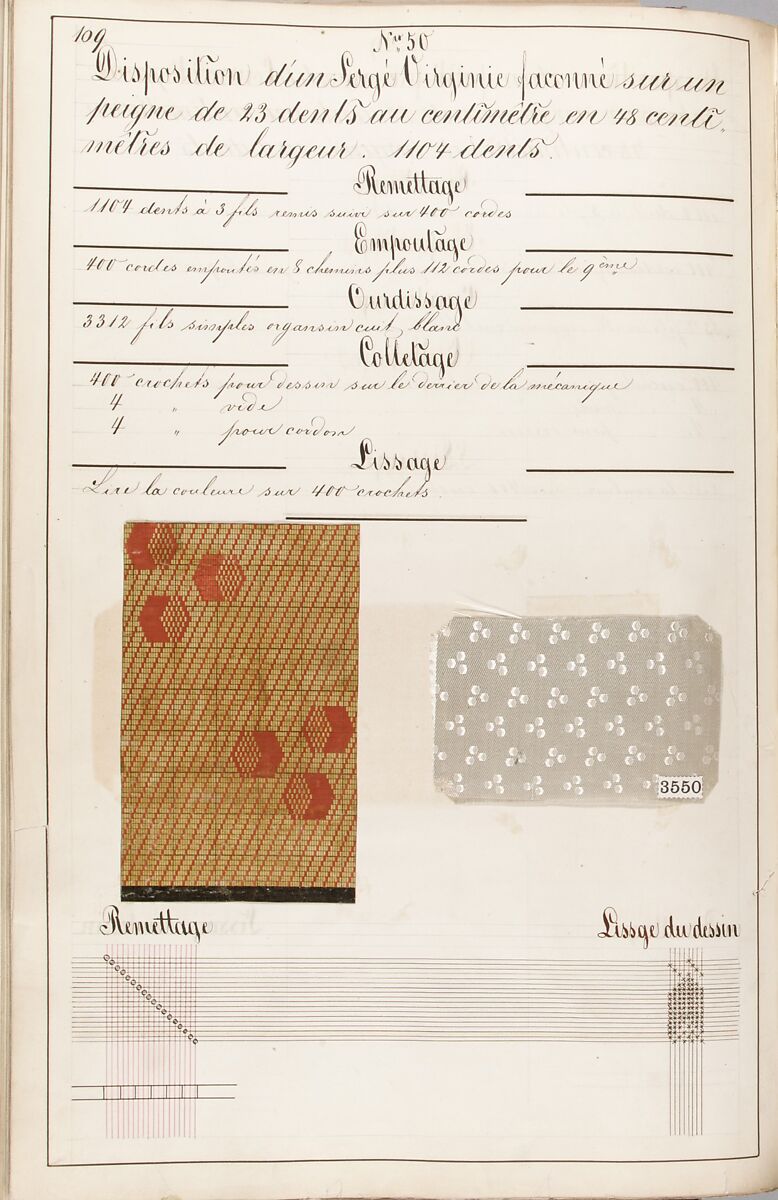 109
Nro 50
Disposition d'un Sergé Virginie façonné sur un
peigne de 23 dents au centimètre en 48 centi,,
mètres de largeur. 1104 dents.
Remettage
1104 dents à 3 fils remis suivi sur 400 cordes
Empoutage
400 cordes empoutés en 8 chemins plus 112 cordes pour le 9ème
Ourdissage
3312 fils simples organsin cuit, blanc
Colletage
400 crochets pour dessin sur le derrier de la mécanique
4 " vide
4 " pour cordon
Lissage
Lire la couleure sur 400 crochets.
3550
Remettage
Lissge du dessin